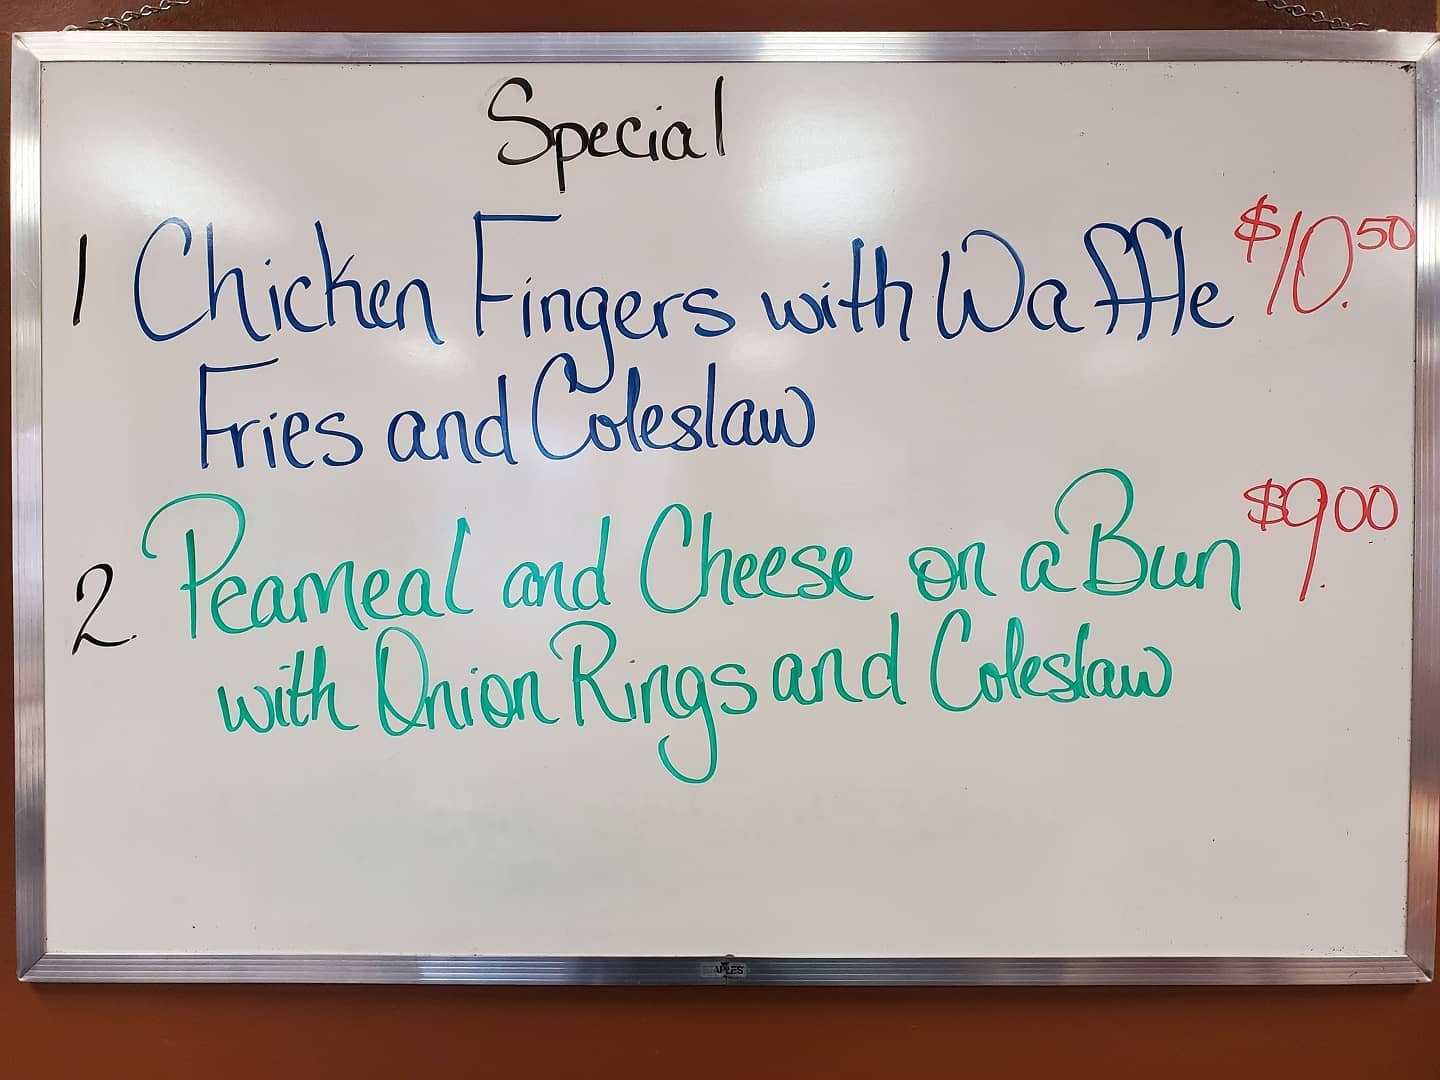 Special
1 Chicken Fingers with Waffle $10.50
Fries and Coleslaw
2. Peameal and Cheese on a Bun $9.00
with Onion Rings and Coleslaw